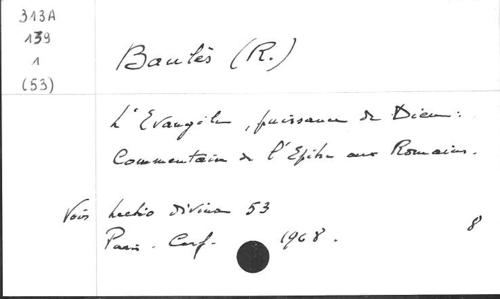 313A
139
1
(53)
Baulès (R.)
L'Evangile, puissance de Dieu :
Commentaire de l'Epitre aux Romains.
Voir Lectio divina 53
Paris - Cerf - 1968.
8